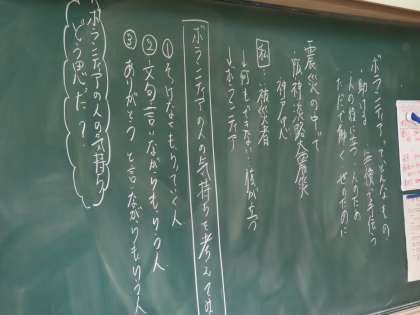 ボランティアってどんなもの
・助ける ・無償で手伝う
・人の役に立つ 人のため
・ただで働く
震災の中で
・阪神淡路大震災
神戸
私…被災者
↓何もできない 腹が立つ
↓ボランティア
ボランティアの人の気持ちを考えてみ
①そっけなくもらっていく人
②文句言いながらもらう人
③ありがとうと言いながらもらう人
ボランティアの人の気持ち
どう思った?